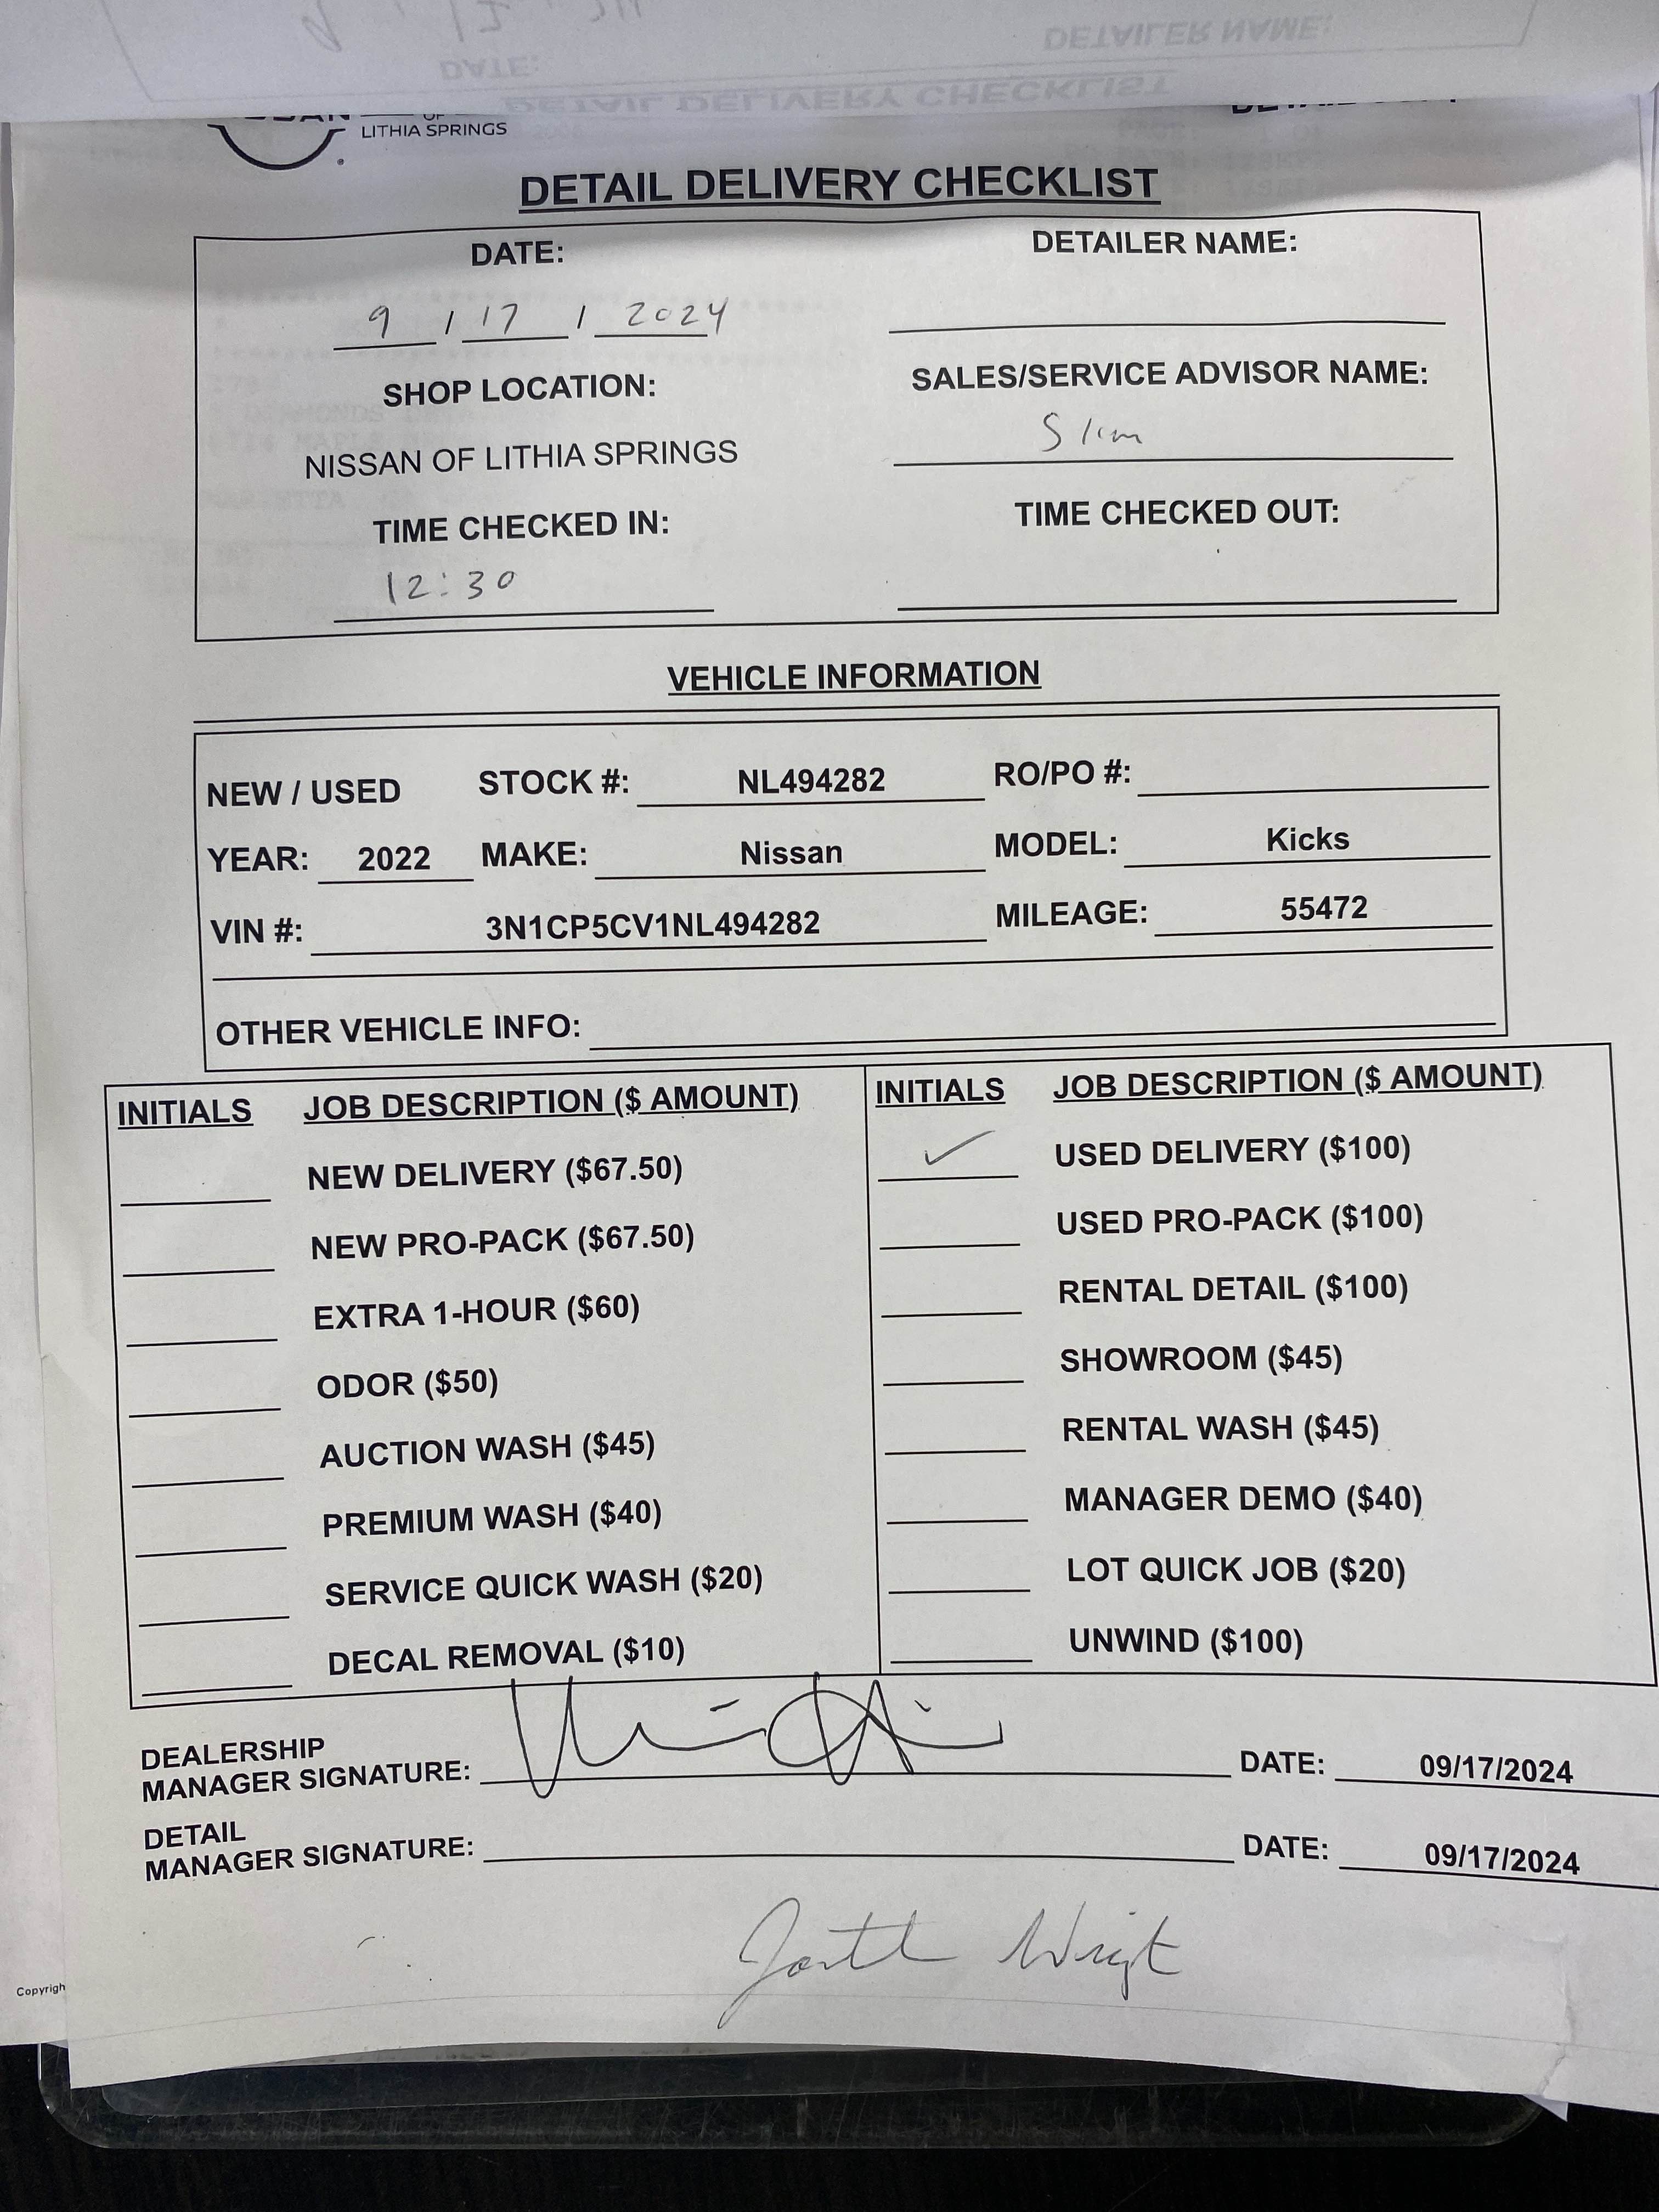 DETAILER NAME:
DATE:
DETAIL DELIVERY CHECKLIST
OF
LITHIA SPRINGS
DETAIL DELIVERY CHECKLIST
DATE: DETAILER NAME:
9 / 17 / 2024
SHOP LOCATION: SALES/SERVICE ADVISOR NAME:
NISSAN OF LITHIA SPRINGS Slim
TIME CHECKED IN: TIME CHECKED OUT:
12:30
VEHICLE INFORMATION
NEW / USED STOCK #: NL494282 RO/PO #:
YEAR: 2022 MAKE: Nissan MODEL: Kicks
VIN #: 3N1CP5CV1NL494282 MILEAGE: 55472
OTHER VEHICLE INFO:
INITIALS JOB DESCRIPTION ($ AMOUNT) INITIALS JOB DESCRIPTION ($ AMOUNT)
NEW DELIVERY ($67.50) ✓ USED DELIVERY ($100)
NEW PRO-PACK ($67.50) USED PRO-PACK ($100)
EXTRA 1-HOUR ($60) RENTAL DETAIL ($100)
ODOR ($50) SHOWROOM ($45)
AUCTION WASH ($45) RENTAL WASH ($45)
PREMIUM WASH ($40) MANAGER DEMO ($40)
SERVICE QUICK WASH ($20) LOT QUICK JOB ($20)
DECAL REMOVAL ($10) UNWIND ($100)
DEALERSHIP
MANAGER SIGNATURE: DATE: 09/17/2024
DETAIL
MANAGER SIGNATURE: DATE: 09/17/2024
Copyrigh